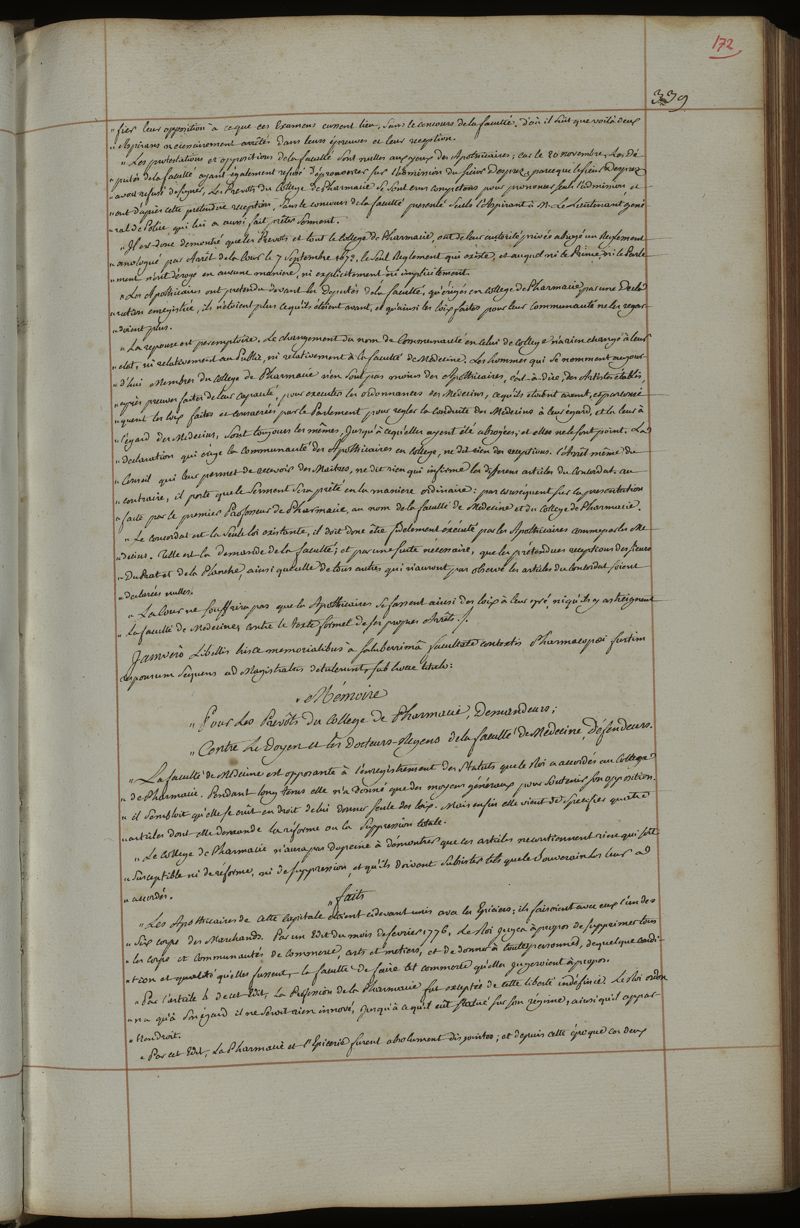 172
339
" fier leur opposition à ce que ces Examens eussent lieu, sans le concours de la faculté. D'où il suit que voilà deux
" Aspirans necessairement arrêtés dans leurs épreuves et leur reception.
" Les protestations et oppositions de la faculté sont nulles aux yeux des Apothicaires; car le 20 novembre, Les Dé
" putés de la faculté ayant également refusé de prononcer sur l'admission du sieur Desprez, parce que le sieur Desprez
" avoit refusé de signer, Les Prevôts du College de Pharmacie se sont crus competens pour prononcer seuls l'admission, et
" ont d'après cette pretendue reception, sans le concours de la faculté presenté seuls l'Aspirant à Mr. Le Lieutenant géné
" ral de Police, qui lui a aussi fait prêter serment.
" Il est donc demontré que les Prevots et tout le College de Pharmacie, ont de leur autorité privée abrogé un Reglement
" omologué par Arrêt de la Cour le 7 Septembre 1672, le seul Reglement qui existe, et auquel ni le Prince, ni le Parle
" ment n'ont dérogé en aucune maniere, ni explicitement ni implicitement.
" Les Apothicaires ont pretendu devant les Deputés de la faculté, qu'érigés en College de Pharmacie par une Décla
" ration enregistrée, ils n'étoient plus ce qu'ils étoient avant, et qu'ainsi les loix faites pour leur communauté ne les regar
" doient plus.
" La reponse est peremptoire. Le changement du nom de Communauté en celui de College n'a rien changé à leur
" etat, ni relativement au Public, ni relativement à la faculté de Médecine. Les hommes qui se nomment aujour
" d'hui Membres du College de Pharmacie n'en sont pas moins des Apothicaires, c'est-à-dire, des Artistes établis,
" après preuves faites de leur capacité, pour executer les ordonnances des Medecins, ce qu'ils etoient avant, et par conse
" quent les loix faites et consacrées par le Parlement pour regler la conduite des Medecins à leur égard, et la leur à
" l'égard des Medecins, sont toujours les mêmes, jusqu'à ce qu'elles ayent été abrogées; et elles ne le sont point. La
" Declaration qui erige la communauté des Apothicaires en College, ne dit rien des receptions. L'Arrêt même du
" Conseil qui leur permet de recevoir des Maitres, ne dit rien qui infirme les differens articles du Concordat. au
" contraire, il porte que le serment sera prêté en la maniere ordinaire: par conséquent sur la presentation
" faite par le premier Professeur de Pharmacie, au nom de la faculté de Médecine et du College de Pharmacie.
" Le concordat est la seule loi existante, il doit donc être fidelement exécuté par les Apothicaires comme par les Mé
" decins. Telle est la demande de la faculté; et par une suite nécessaire, que les prétendues receptions des sieurs
" Du Prat et de la Planche, ainsi que celle de tous autres qui n'auront pas observé les articles du Concordat soient
" declarées nulles.
" La Cour ne souffrira pas que les Apothicaires se fassent ainsi des loix à leur gré, ni qu'ils y astreignent
" La faculté de Medecine contre le texte formel de ses propres Arrêts./.
Jam vero Libellis hisce memorialibus à saluberrimâ facultate contextis Pharmacopœi furtim
responsum sequens ad Magistratus detulerunt, sub hocce titulo:
" Mémoire
" Pour Les Prevôts du College de Pharmacie, Demandeurs;
" Contre Le Doyen et les Docteurs-Regens de la faculté de Médecine, Défendeurs.
" La faculté de Médecine est opposante à l'enregistrement des Statuts que le Roi a accordés au College
" de Pharmacie. Pendant long tems elle n'a donné que des moyens généraux pour soutenir son opposition.
" il sembloit qu'elle se crût en droit de lui donner seule des loix. Mais enfin elle vient de specifier quatre
" articles dont elle demande la réforme ou la suppression totale.
" Le College de Pharmacie n'aura pas de peine à démontrer que ces articles ne contiennent rien qui soit
" susceptible ni de réforme, ni de suppression, et qu'ils doivent subsister tels que le Souverain les leur a
" accordés.
" faits
" Les Apothicaires de cette Capitale étoient cidevant unis avec les Epiciers; ils faisoient avec eux l'un des
" Six corps des Marchands. Par un Edit du mois de fevrier 1776, Le Roi jugea à propos de supprimer tous
" les corps et Communautés de Commerce, arts et metiers, et de donner à toutes personnes, de quelque condi
" tion et qualité qu'elles fussent, la faculté de faire tel commerce qu'elles jugeroient à propos.
" Par l'article 6 de cet Edit, La Profession de la Pharmacie fut exceptée de cette liberté indéfinie. Le Roi ordon
" na qu'à son égard il ne seroit rien innové, jusqu'à ce qu'il eut statué sur son régime, ainsi qu'il appar
" tiendroit.
" Par cet Edit, La Pharmacie et l'Epicerie furent absolument disjointes; et depuis cette époque ces deux